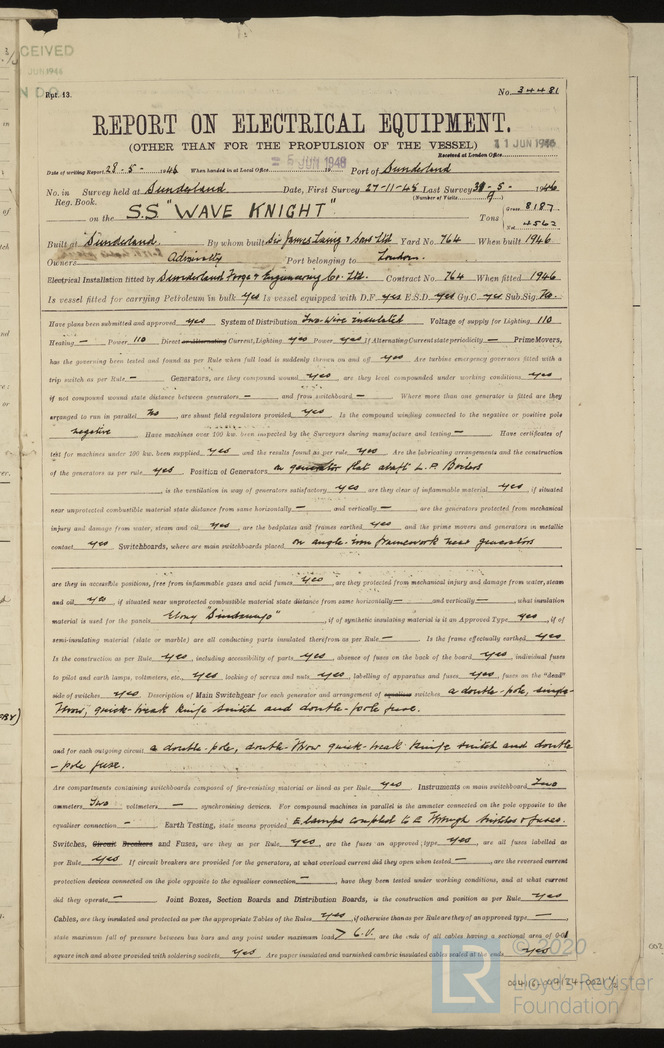 CEIVED
JUN 1946
Rpt. 13.
No. 34481
REPORT ON ELECTRICAL EQUIPMENT.
(OTHER THAN FOR THE PROPULSION OF THE VESSEL)
11 JUN 1946
Received at London Office
Date of writing Report 28-5-1946 When handed in at Local Office 5 JUN 1946 Port of Sunderland
No. in Survey held at Sunderland. Date, First Survey 27-11-45 Last Survey -5-1946
Reg. Book. (Number of Visits 9)
on the S.S. "WAVE KNIGHT" Tons Gross 8187 Net 4562
Built at Sunderland. By whom built Sir James Laing & Sons Ltd Yard No. 764 When built 1946
Owners Admiralty Port belonging to London.
Electrical Installation fitted by Sunderland Forge & Engineering Co. Ltd. Contract No. 764 When fitted 1946
Is vessel fitted for carrying Petroleum in bulk yes Is vessel equipped with D.F. yes E.S.D. yes Gy.C. yes Sub.Sig. No.
Have plans been submitted and approved yes System of Distribution Two-wire insulated Voltage of supply for Lighting 110
Heating - Power 110 Direct or Alternating Current, Lighting yes Power yes If Alternating Current state periodicity - Prime Movers,
has the governing been tested and found as per Rule when full load is suddenly thrown on and off yes Are turbine emergency governors fitted with a
trip switch as per Rule - Generators, are they compound wound yes, are they level compounded under working conditions yes
if not compound wound state distance between generators - and from switchboard - Where more than one generator is fitted are they
arranged to run in parallel No, are shunt field regulators provided yes Is the compound winding connected to the negative or positive pole
negative Have machines over 100 kw. been inspected by the Surveyors during manufacture and testing - Have certificates of
test for machines under 100 kw. been supplied yes and the results found as per rule yes Are the lubricating arrangements and the construction
of the generators as per rule yes Position of Generators on generator flat abaft L.P. Boilers
, is the ventilation in way of generators satisfactory yes are they clear of inflammable material yes if situated
near unprotected combustible material state distance from same horizontally - and vertically - , are the generators protected from mechanical
injury and damage from water, steam and oil yes, are the bedplates and frames earthed yes and the prime movers and generators in metallic
contact yes Switchboards, where are main switchboards placed on angle-iron framework near generators
are they in accessible positions, free from inflammable gases and acid fumes yes, are they protected from mechanical injury and damage from water, steam
and oil yes, if situated near unprotected combustible material state distance from same horizontally - and vertically - , what insulation
material is used for the panels Ebony "Sindanyo", if of synthetic insulating material is it an Approved Type yes, if of
semi-insulating material (slate or marble) are all conducting parts insulated therefrom as per Rule - Is the frame effectually earthed yes
Is the construction as per Rule yes, including accessibility of parts yes, absence of fuses on the back of the board yes, individual fuses
to pilot and earth lamps, voltmeters, etc., yes locking of screws and nuts yes, labelling of apparatus and fuses yes, fuses on the "dead"
side of switches yes. Description of Main Switchgear for each generator and arrangement of equaliser switches a double-pole, single-
throw, quick-break knife switch and double-pole fuse.
and for each outgoing circuit a double-pole, double-throw quick-break knife switch and double
-pole fuse.
Are compartments containing switchboards composed of fire-resisting material or lined as per Rule yes Instruments on main switchboard Two
ammeters Two voltmeters - synchronising devices. For compound machines in parallel is the ammeter connected on the pole opposite to the
equaliser connection - Earth Testing, state means provided E lamps coupled to E through switches & fuses.
Switches, Circuit Breakers and Fuses, are they as per Rule yes, are the fuses an approved type yes, are all fuses labelled as
per Rule yes If circuit breakers are provided for the generators, at what overload current did they open when tested - , are the reversed current
protection devices connected on the pole opposite to the equaliser connection - , have they been tested under working conditions, and at what current
did they operate - Joint Boxes, Section Boards and Distribution Boards, is the construction and position as per Rule yes
Cables, are they insulated and protected as per the appropriate Tables of the Rules yes, if otherwise than as per Rule are they of an approved type - ,
state maximum fall of pressure between bus bars and any point under maximum load > 6.V. are the ends of all cables having a sectional area of 0·01
square inch and above provided with soldering sockets yes Are paper insulated and varnished cambric insulated cables sealed at the ends yes
© 2020
LR
Lloyd's Register
Foundation
004161-004124-0021½